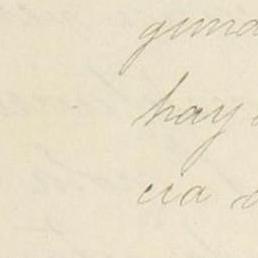 guna
hay
cia